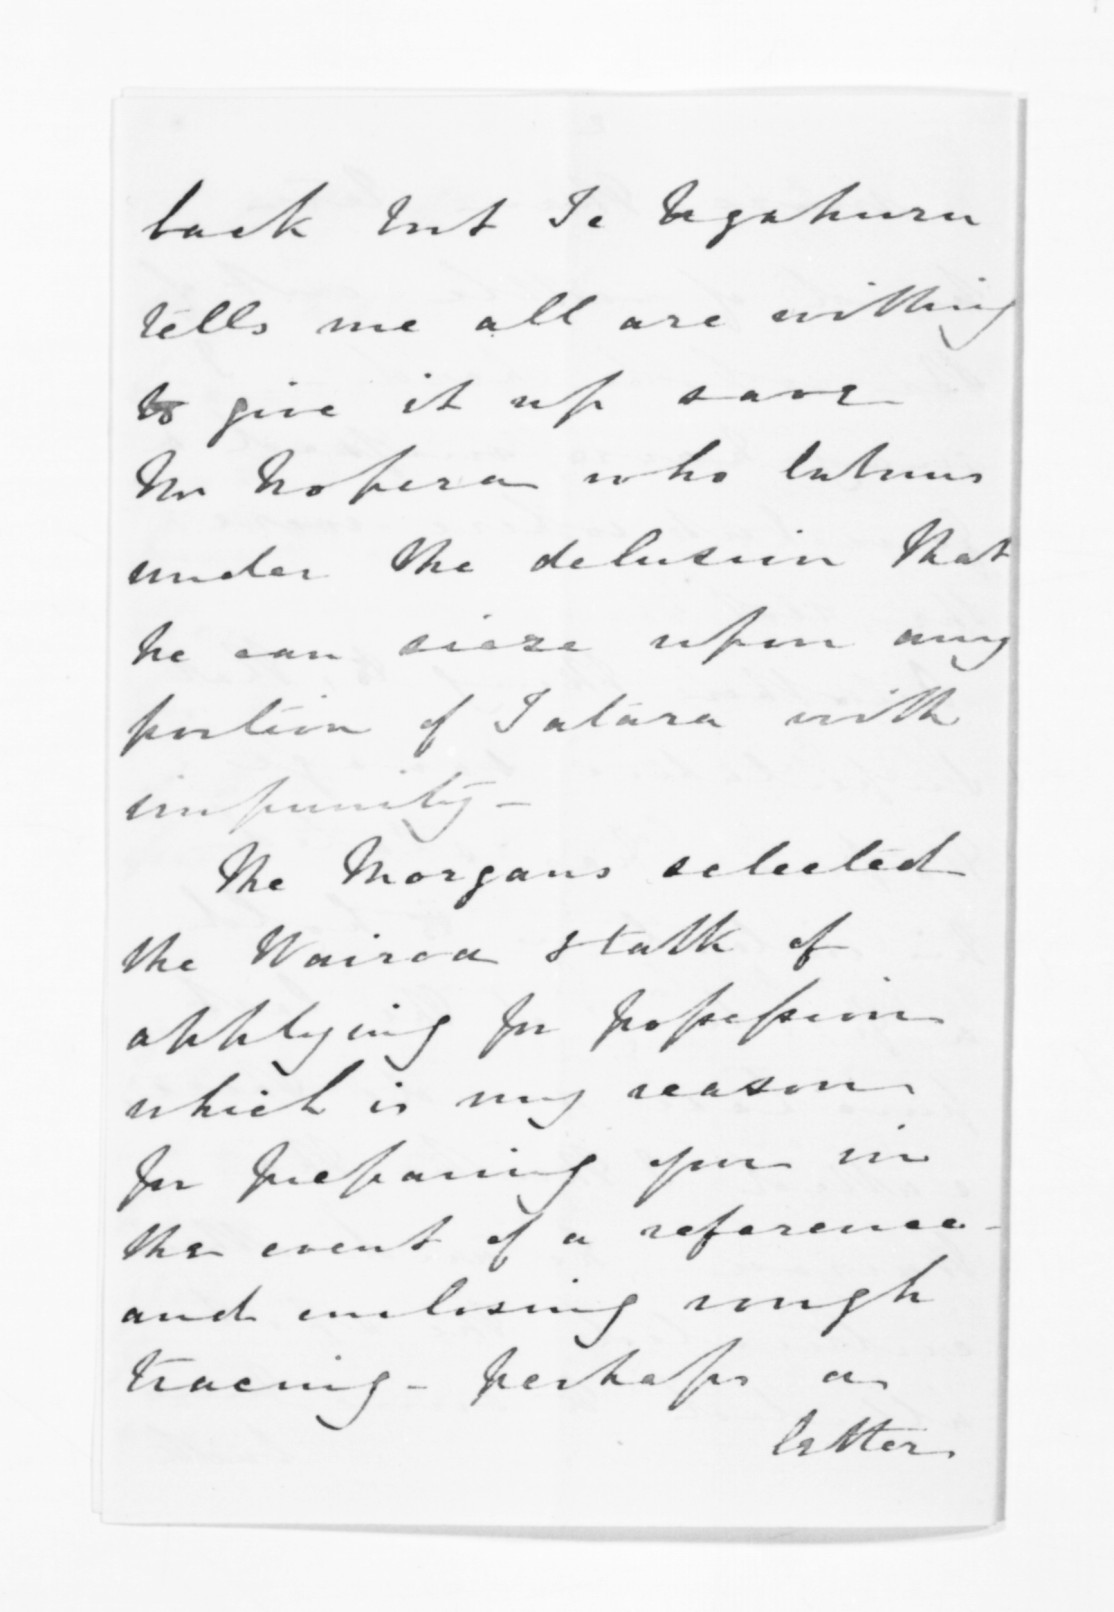 back but Te Ngahuru
tells me all are willing
to give it up save
Mr Ropera who labours
under the delusion that
he can sieze upon any
portion of Tatara with
impunity -
The Morgans selected
the Wairoa & talk of
applying for possession
which is my reason
for preparing you in
the event of a reference -
and enclosing rough
tracing - perhaps a
letter